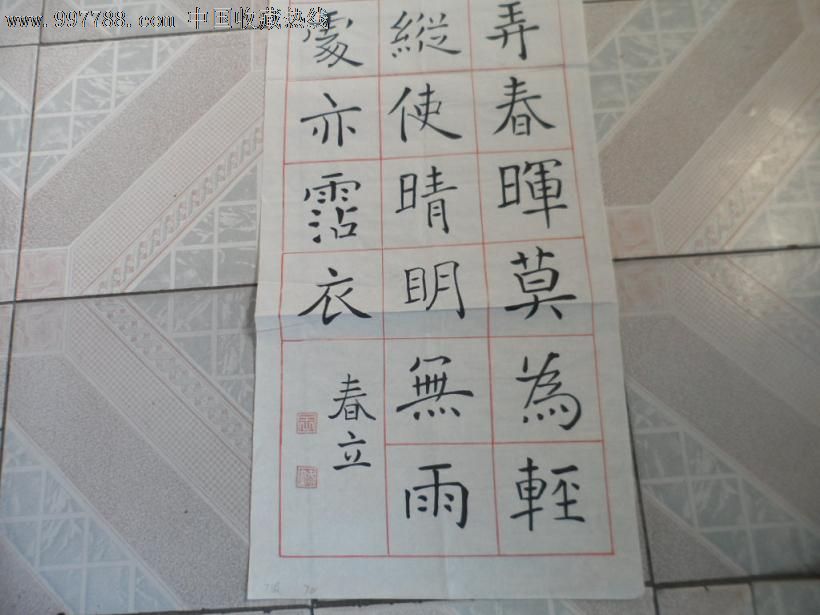 www.997788.com 中国收藏热线
弄春暉莫為輕
縦使晴明無雨
處亦霑衣
春立